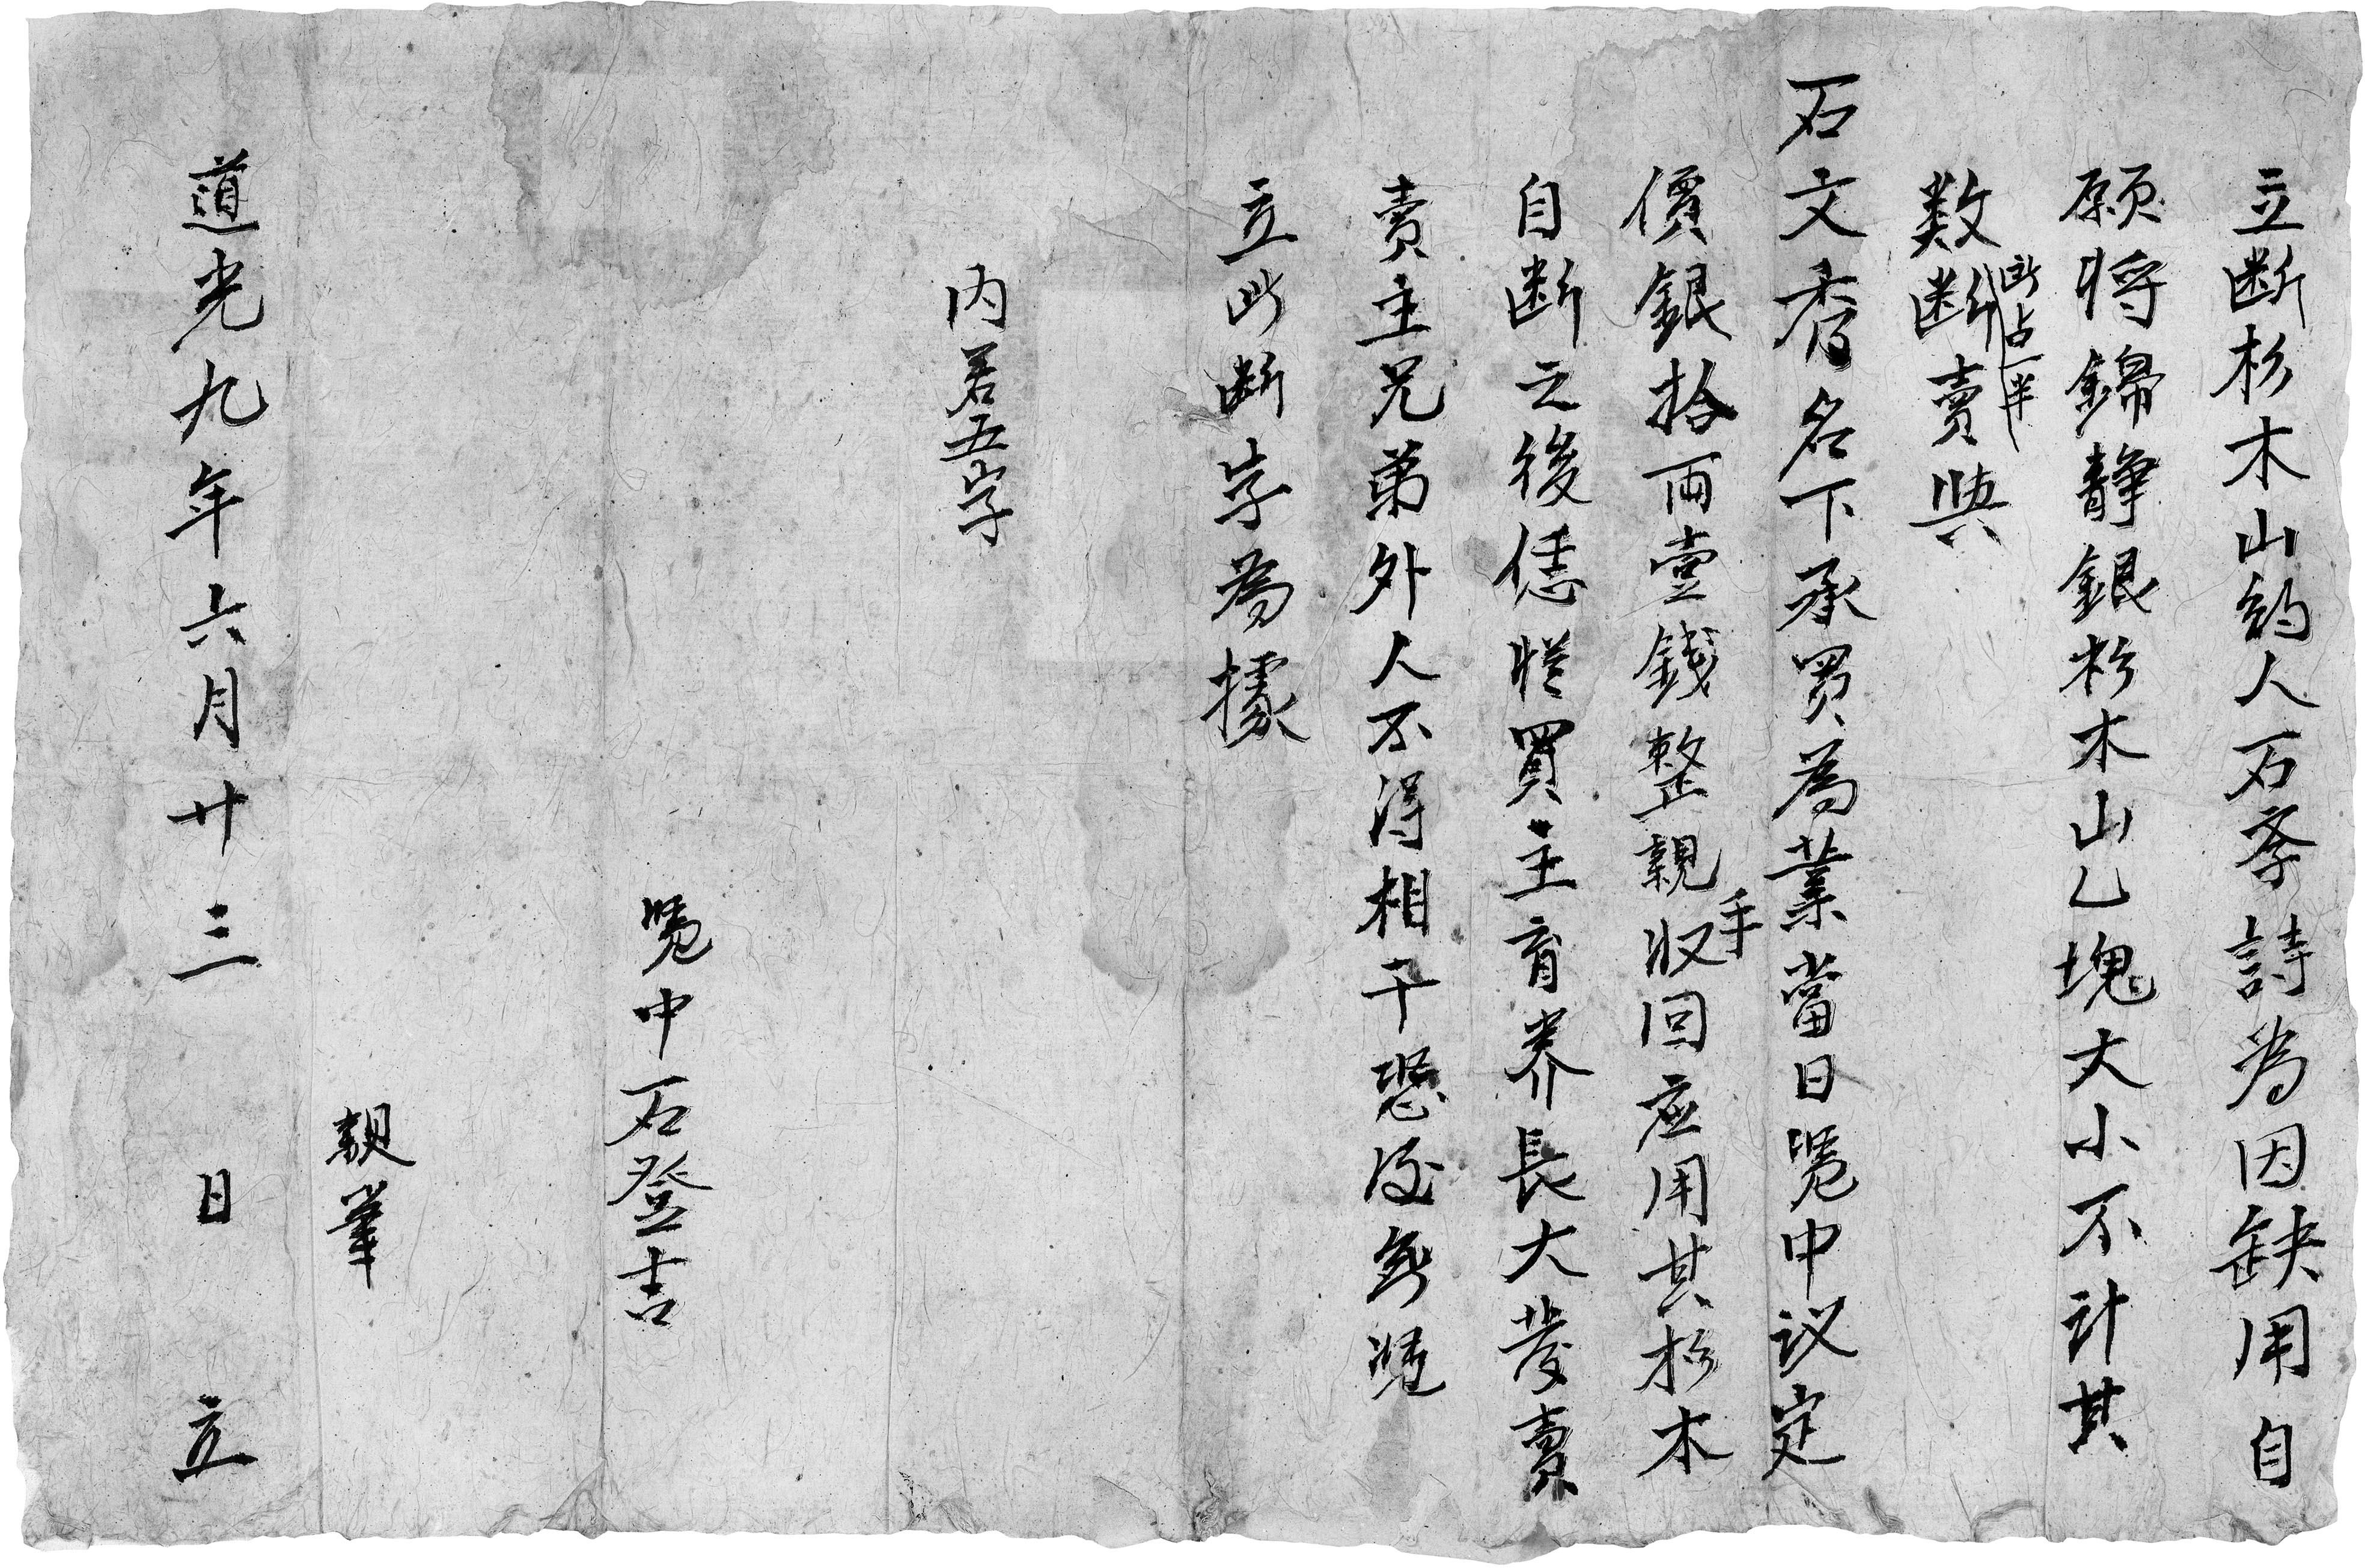 立断杉木山約人石孝詩為因缺用自
願將錦静銀杉木山乙塊大小不计其
数断所占一半賣與
石文秀名下承買為業當日凴中议定
價銀拾两壹錢整親手收回应用其杉木
自断之後恁從買主育养長大發賣
賣主兄弟外人不得相干恐後無凴
立此断字為據
内署五字
凴中石登吉
親筆
道光九年六月廿三日立